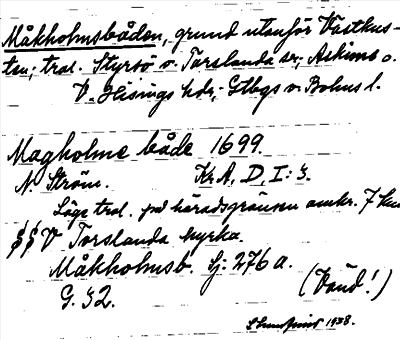 Måkholmsbåden, grund utanför Västkus-
ten; tral. Styrsö o. Torslanda sr; Askims o.
V. Hisings hdr; Gtbgs o. Bohus l.
Magholme både 1699.
N. Ström. KrA, D, I: 3.
Läge tral. på häradsgränsen omkr. 7 km
V Torslanda kyrka.
Måkholmsb. Sj: 276 a.
G. 32. (Vänd!)
1938.